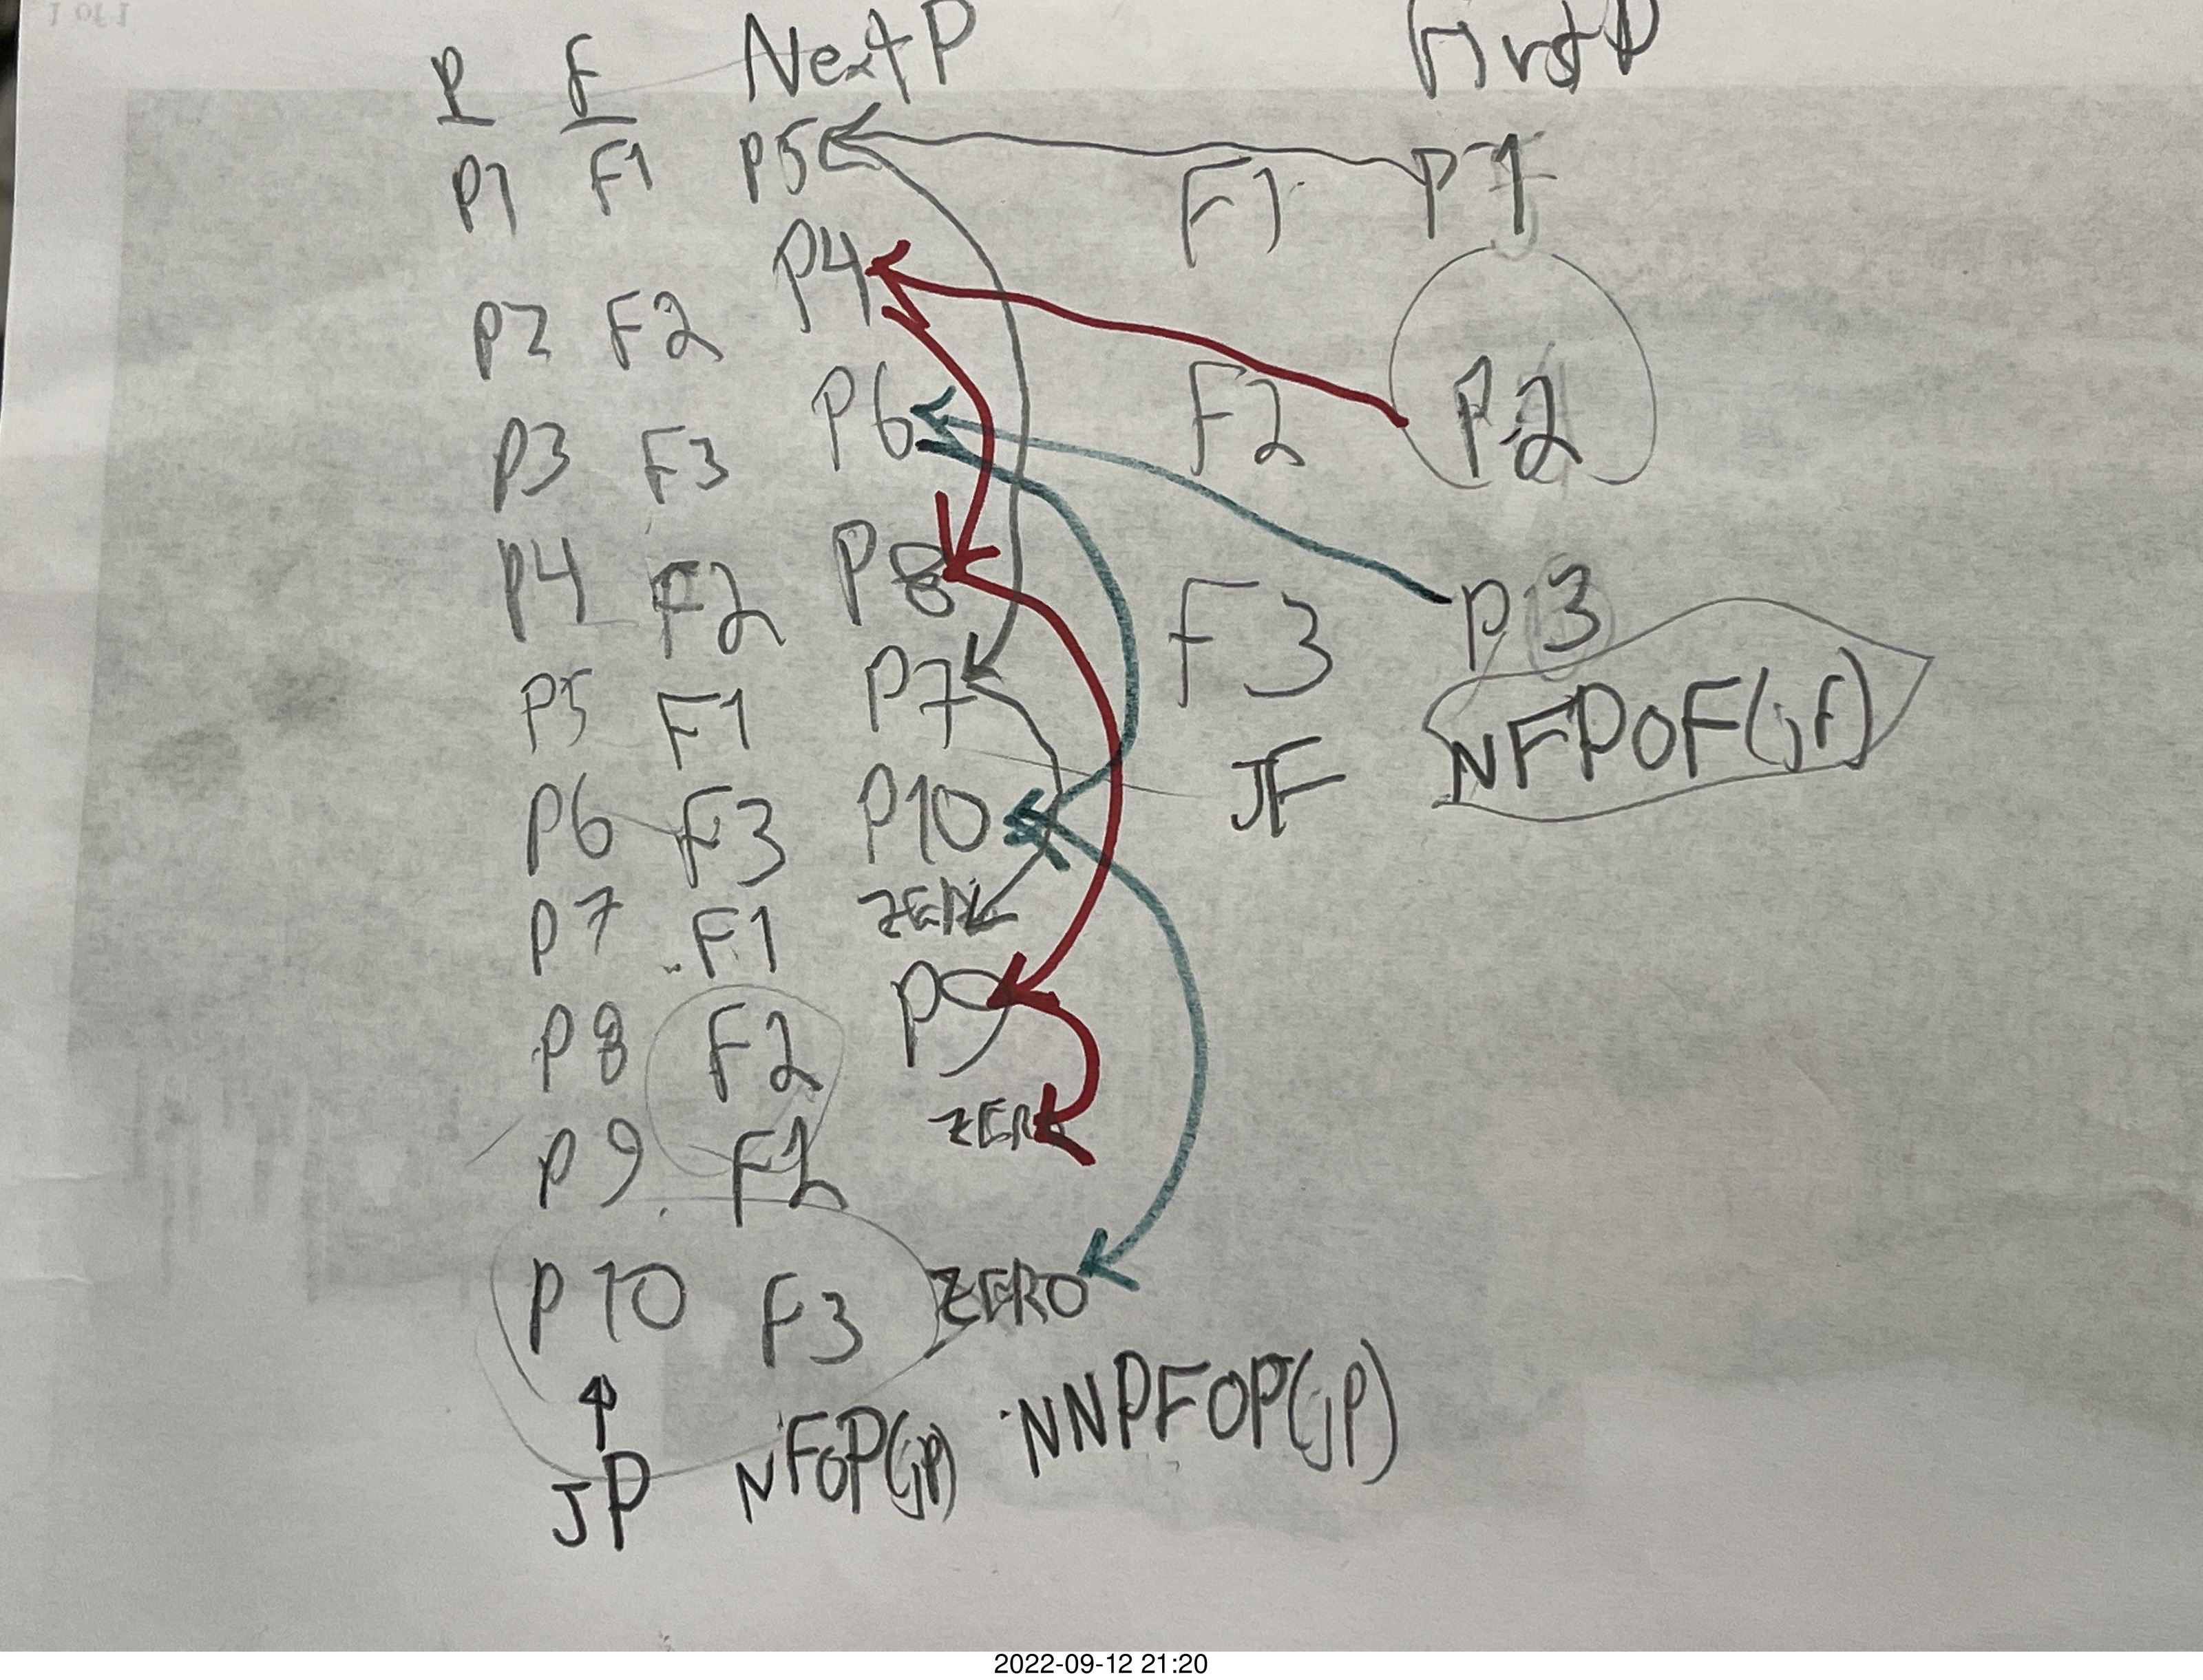 1 of 1
P F NextP FirstP
P1 F1 P5 F1 P1
P2 F2 P4 F2 P2
P3 F3 P6 F3 P3
P4 F2 P8
P5 F1 P7 JF NFPOF(jf)
P6 F3 P10
P7 F1 ZERO
P8 F2 P9
P9 F2 ZERO
P10 F3 ZERO
JP NFOP(jp) NNPFOP(jP)
2022-09-12 21:20